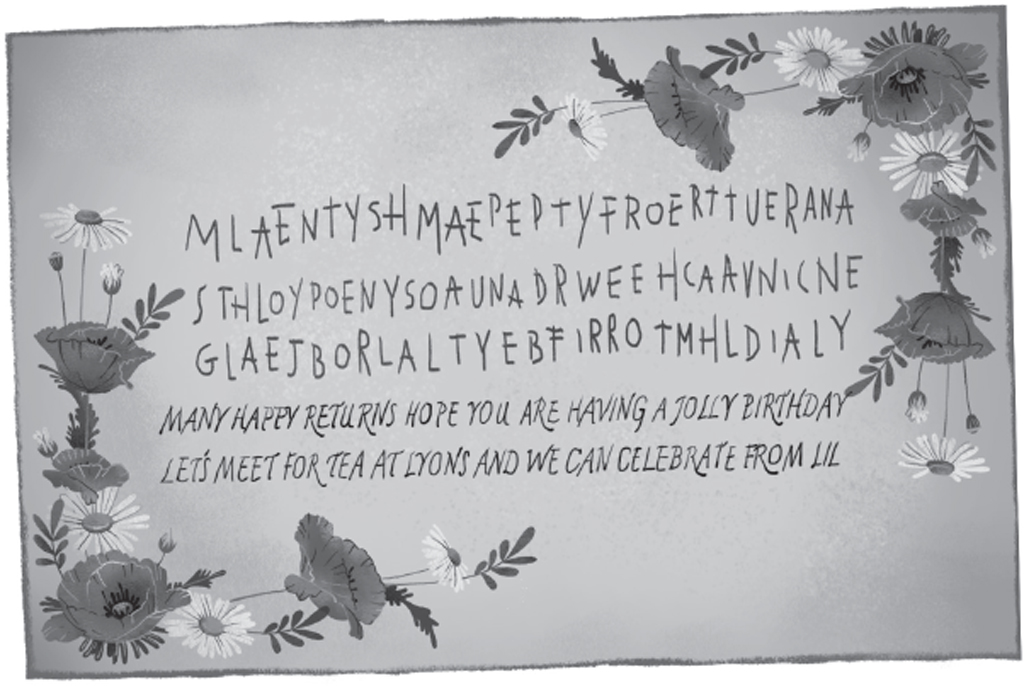 MLAENTYSHMAEPEPTYFROERTTUERANA
STHLOYPOENYSOAUNADRWEEHCAAVNICNE
GLAEJBORLALTYEBFIRROTMHLDIALY
MANY HAPPY RETURNS HOPE YOU ARE HAVING A JOLLY BIRTHDAY
LET'S MEET FOR TEA AT LYONS AND WE CAN CELEBRATE FROM LIL